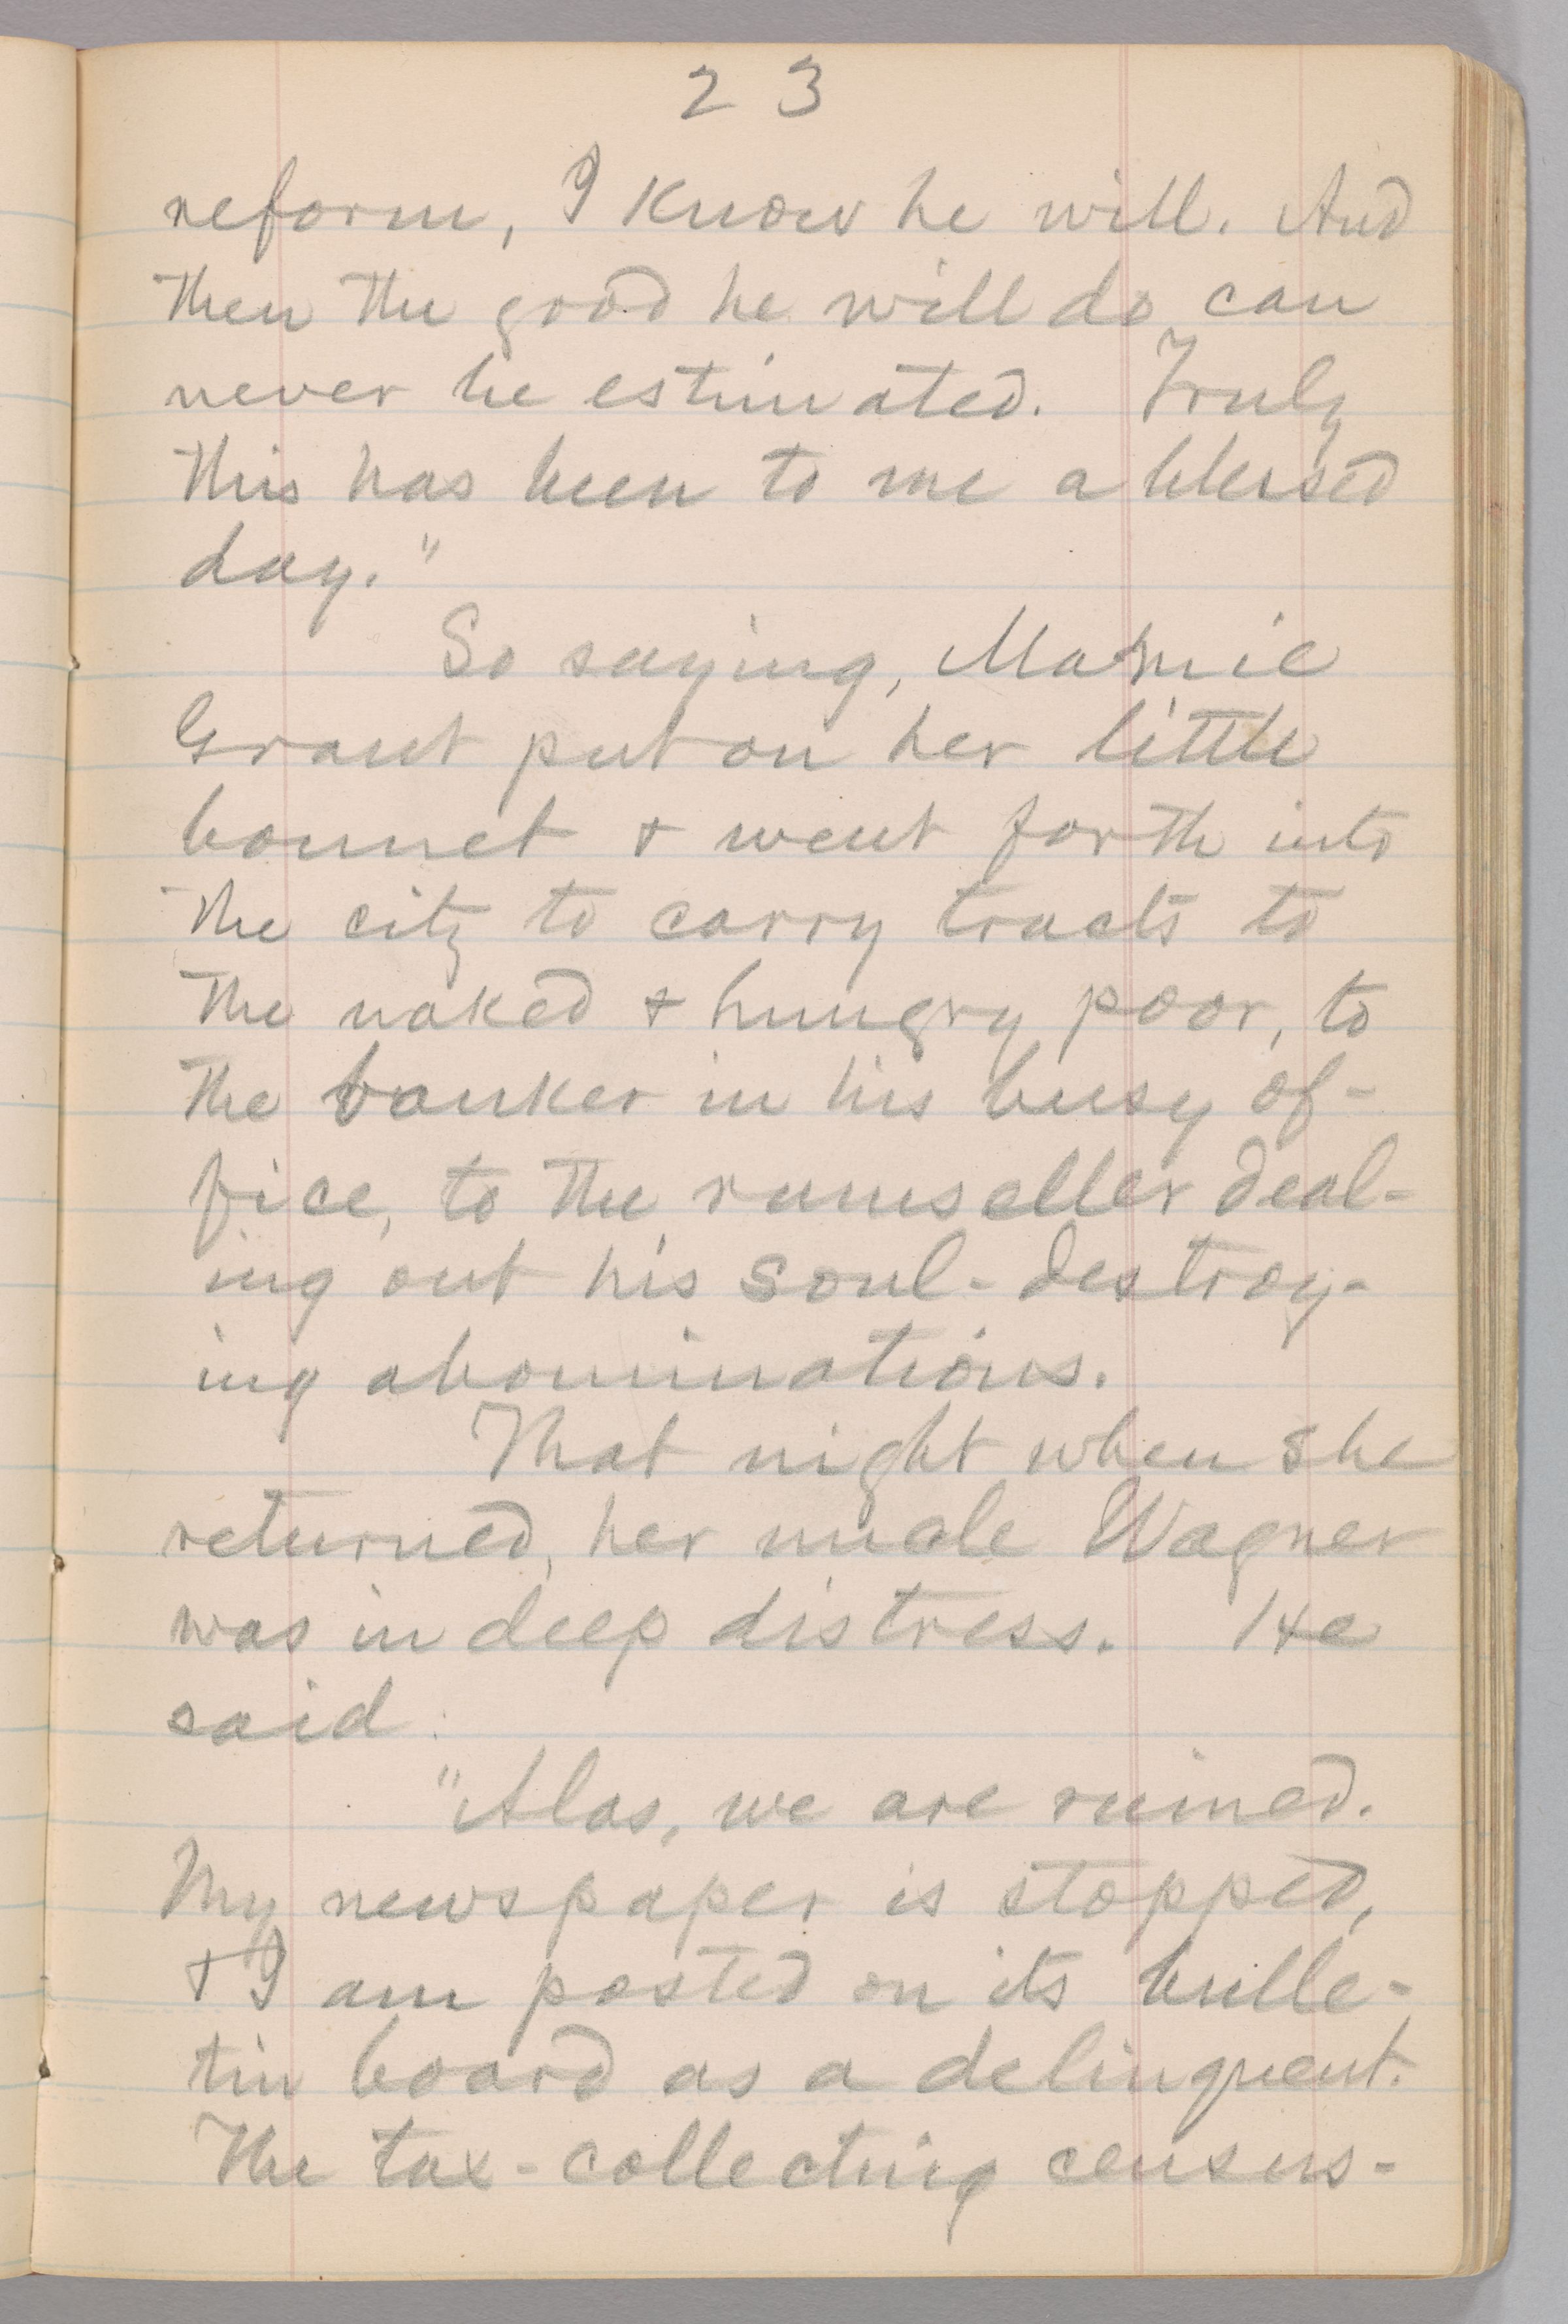 23
reform, I know he will. And
then the good he will do can
never be estimated. Truly
this has been to me a blessed
day."
So saying, Mamie
Grant put on her little
bonnet & went forth into
the city to carry tracts to
the naked & hungry poor, to
the banker in his busy of-
fice, to the rumseller deal-
ing out his soul-destroy-
ing abominations.
That night when she
returned, her uncle Wagner
was in deep distress. He
said:
"Alas, we are ruined.
My newspaper is stopped,
& I am posted on its bulle-
tin board as a delinquent.
The tax-collecting census-